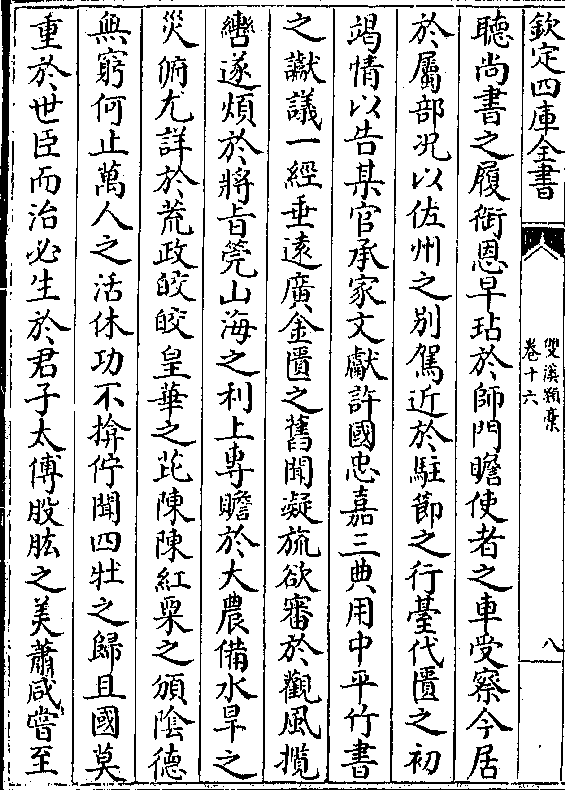 欽定四庫全書
雙溪類稾
卷十六
八
聽尚書之履銜恩早玷於師門瞻使者之車受察今居
於屬部况以佐州之别駕近於駐節之行臺代匱之初
竭情以告某官承家文獻許國忠嘉三典用中平竹書
之讞議一經垂逺廣金匱之舊聞凝旒欲審於觀風攬
轡遂煩於將旨筦山海之利上專贍於大農備水旱之
災俯尤詳於荒政皎皎皇華之茈陳陳紅粟之頒陰德
無窮何止萬人之活休功不揜佇聞四牡之歸且國莫
重於世臣而治必生於君子太傅股肱之美蕭咸嘗至